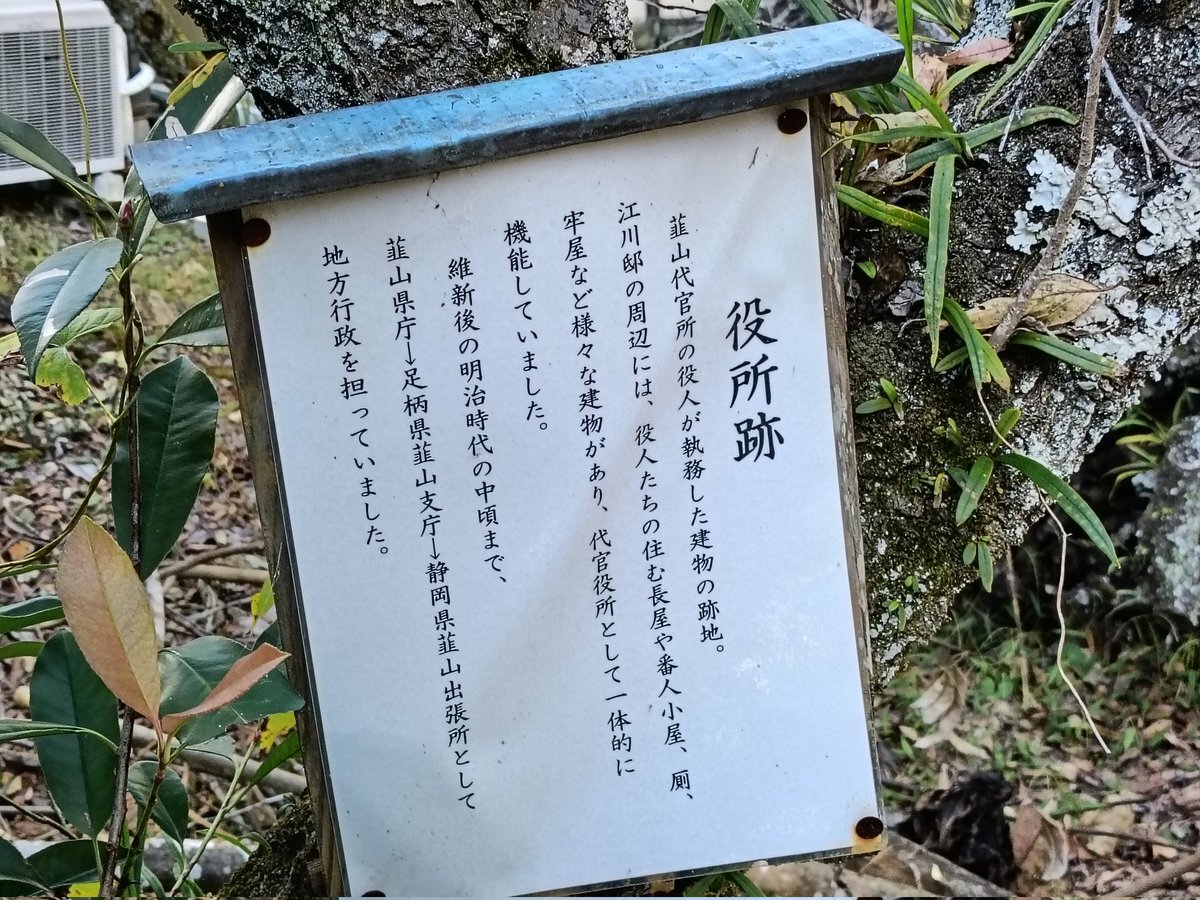 役所跡
韮山代官所の役人が執務した建物の跡地。
江川邸の周辺には、役人たちの住む長屋や番人小屋、厠、
牢屋など様々な建物があり、代官役所として一体的に
機能していました。
維新後の明治時代の中頃まで、
韮山県庁→足柄県韮山支庁→静岡県韮山出張所として
地方行政を担っていました。